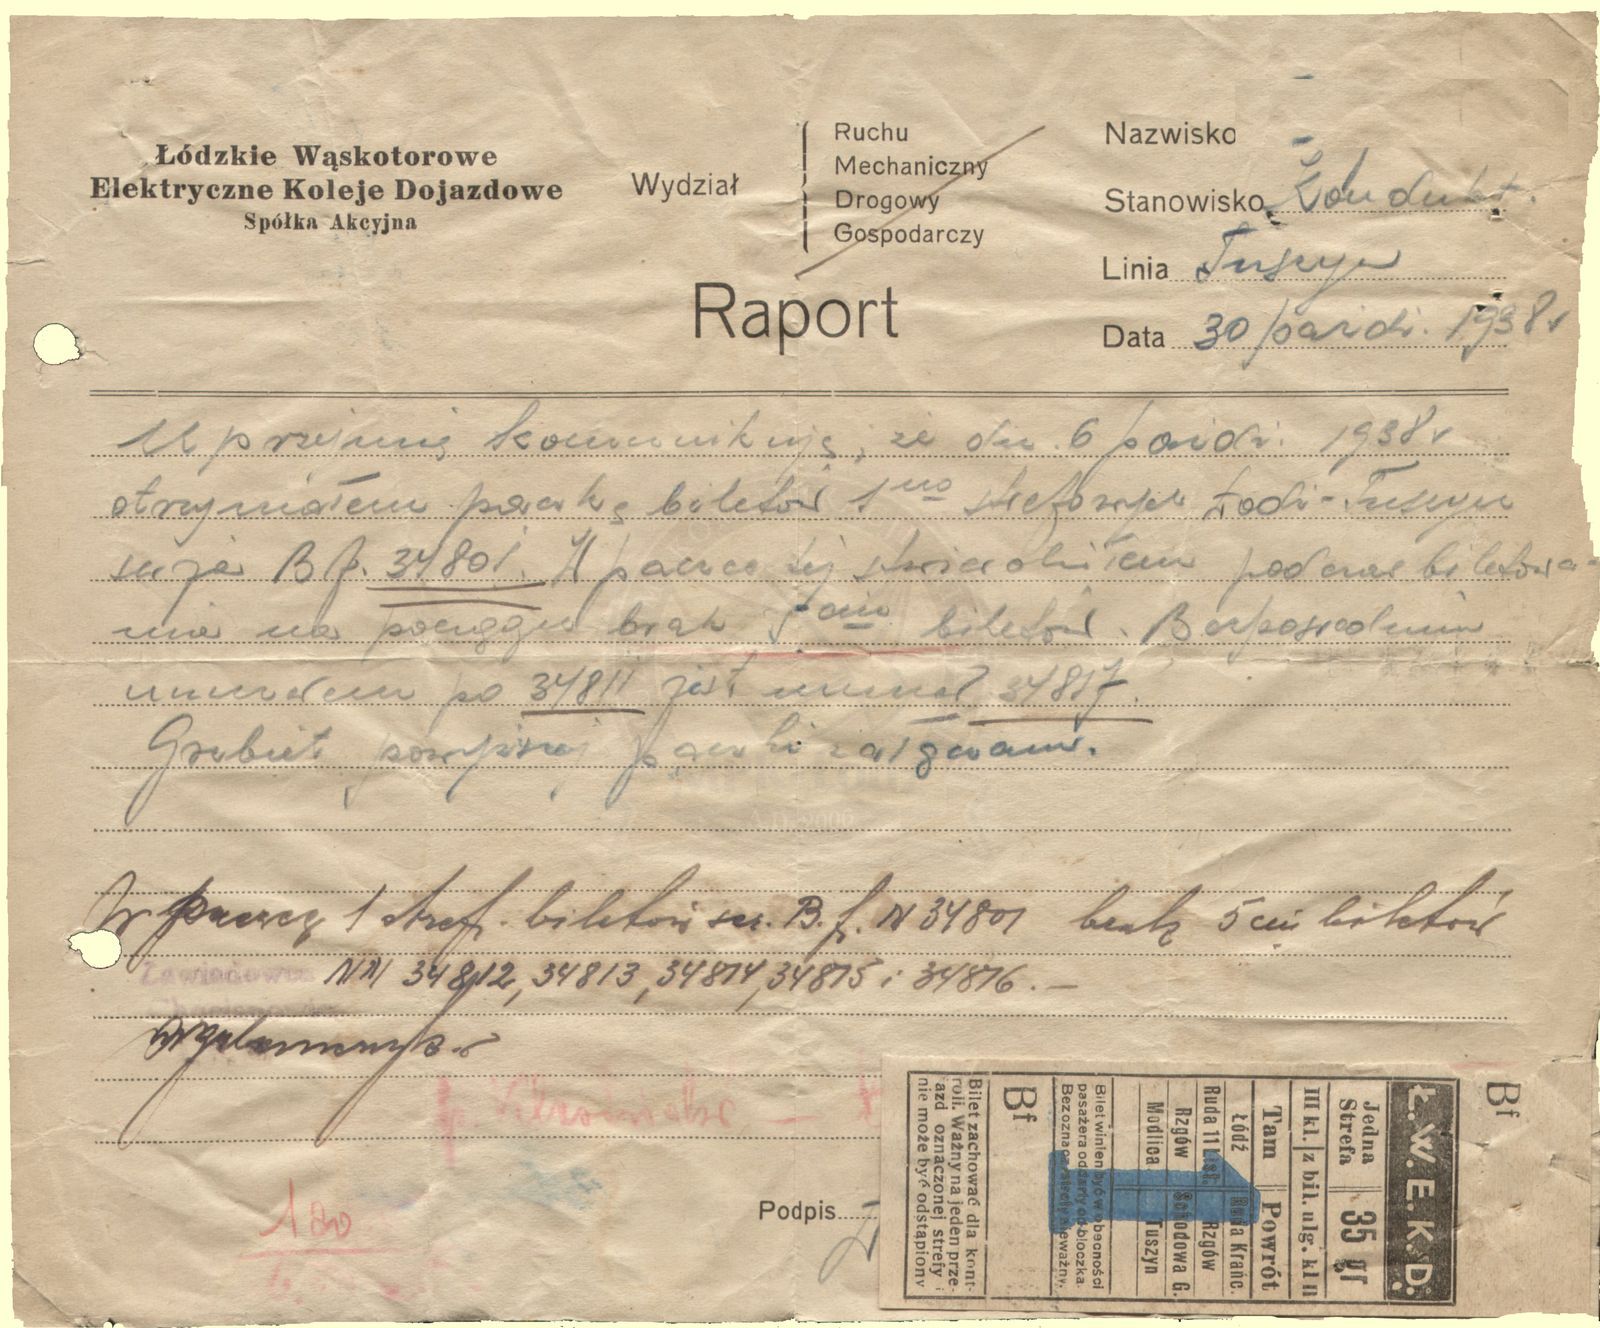 Łódzkie Wąskotorowe
Elektryczne Koleje Dojazdowe
Spółka Akcyjna
Wydział
Ruchu
Mechaniczny
Drogowy
Gospodarczy
Raport
Nazwisko
Stanowisko Kondukt.
Linia Tuszyn
Data 30 paźdz. 1938 r
Uprzejmie komunikuję, że dn. 6 paźdz. 1938 r
otrzymałem paczkę biletów 1no strefowych Łódź-Tuszyn
serja Bf. 34801. W paczce tej stwierdziłem podczas biletowa-
nia na pociągu brak 5ciu biletów. Bezpośrednim
numerem po 34811 jest numer 34817.
Grzbiet powyższej paczki załączam.
W paczce 1 stref. biletów ser. B.f. N 34801 brak 5ciu biletów
NN 34812, 34813, 34814, 34815 i 34816. —
Zawiadowca
Podpis
Bf
Ł.W.E.K.D.
Jedna Strefa 35 gr
III kl. z bil. ulg. kl II
Tam Powrót
Łódź Ruda Krańc.
Ruda 11 List. Rzgów
Rzgów Schodowa G.
Modlica Tuszyn
Bilet winien być w obecności
pasażera oddarty od bloczka.
Bez oznaczania strefy nieważny.
Bf
Bilet zachować dla kont-
roli. Ważny na jeden prze-
azd oznaczonej strefy i
nie może być odstąpiony
1 do
A.D. 2006